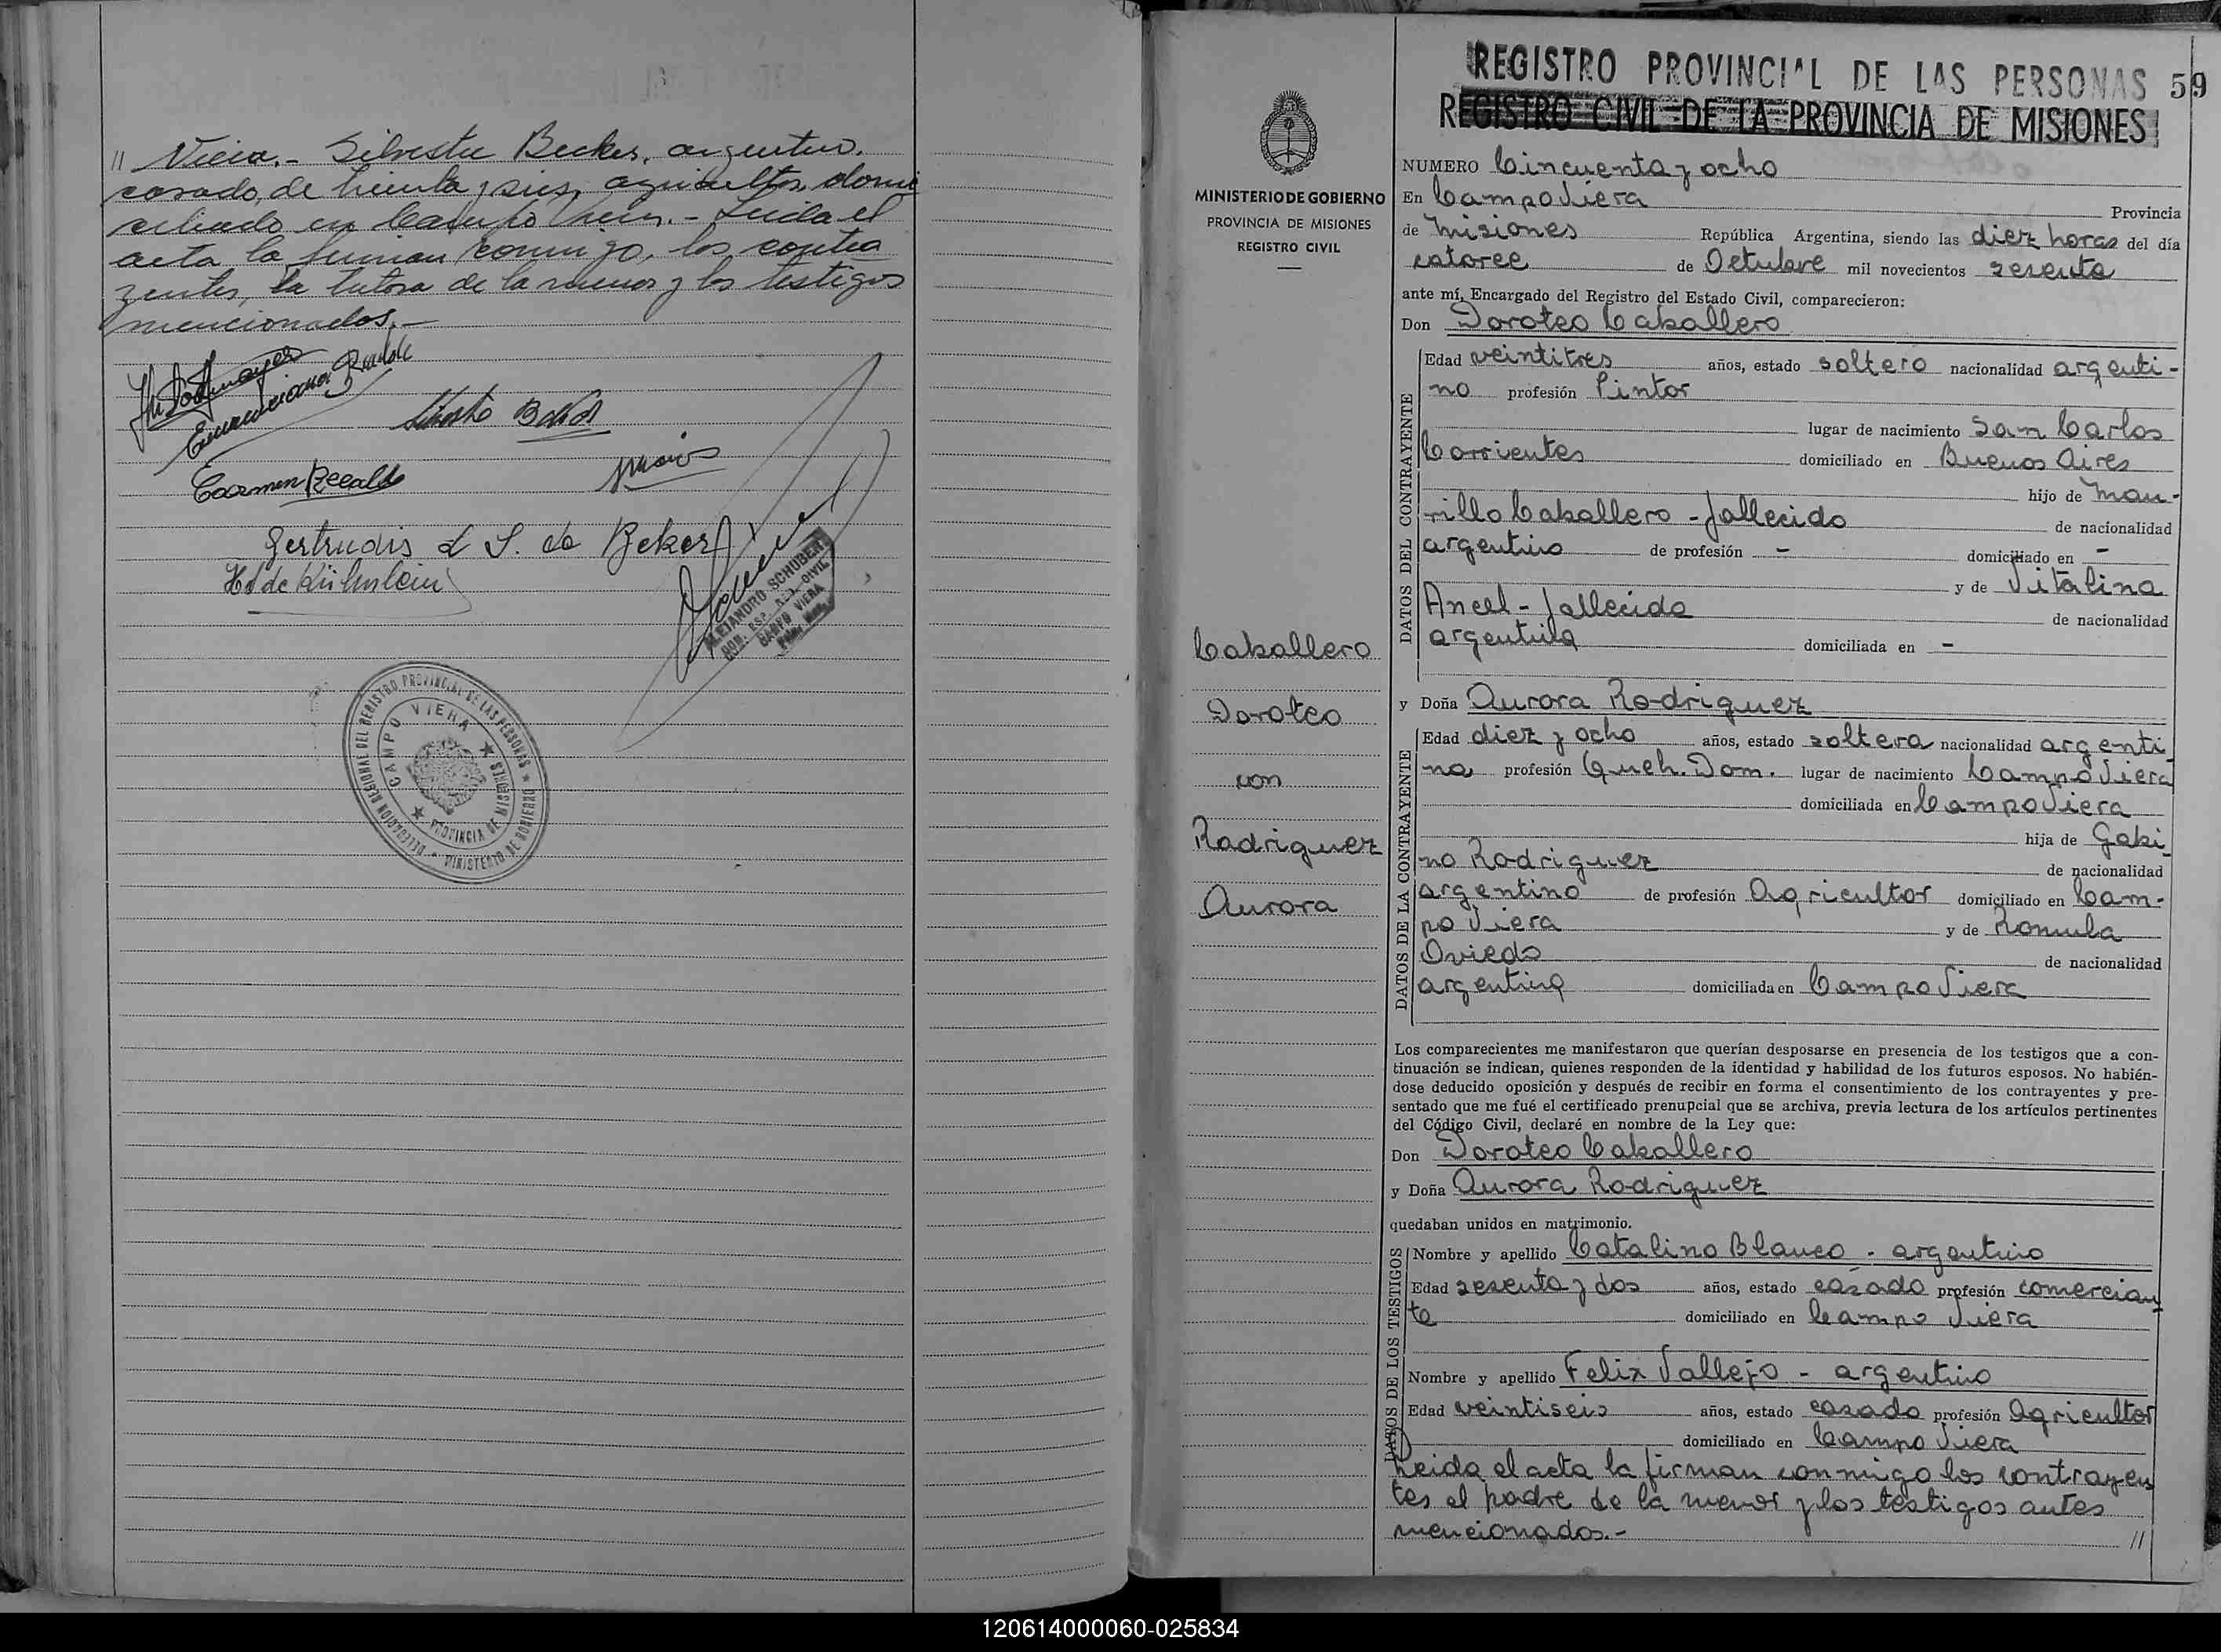 // Viera.- Silvestre Becker, argentino,
casado, de treinta y seis, agricultor, domi
ciliado en Campo Viera.- Leida el
acta la firman conmigo, los contra
yentes, la tutora de la menor y los testigos
mencionados.-
Carmen Recalde
Gertrudis d S. de Beker
H. de Kühnlein
ALEJANDRO SCHUBERT
CAMPO VIERA
DELEGACION REGIONAL DEL REGISTRO PROVINCIAL DE LAS PERSONAS * MINISTERIO DE GOBIERNO *
CAMPO VIERA ★ PROVINCIA DE MISIONES ★
REGISTRO PROVINCIAL DE LAS PERSONAS 59
REGISTRO CIVIL DE LA PROVINCIA DE MISIONES
MINISTERIO DE GOBIERNO
PROVINCIA DE MISIONES
REGISTRO CIVIL
Caballero
Doroteo
con
Rodriguez
Aurora
NUMERO Cincuenta y ocho
En Campo Viera Provincia
de Misiones República Argentina, siendo las diez horas del día
catorce de Octubre mil novecientos sesenta
ante mí, Encargado del Registro del Estado Civil, comparecieron:
Don Doroteo Caballero
DATOS DEL CONTRAYENTE
Edad veintitres años, estado soltero nacionalidad argenti-
no profesión Pintor
lugar de nacimiento San Carlos
Corrientes domiciliado en Buenos Aires
hijo de Mau-
rillo Caballero - fallecido de nacionalidad
argentino de profesión - domiciliado en -
y de Vitalina
Ancel - fallecida de nacionalidad
argentina domiciliada en -
y Doña Aurora Rodriguez
DATOS DE LA CONTRAYENTE
Edad diez y ocho años, estado soltera nacionalidad argenti
na profesión Queh. Dom. lugar de nacimiento Campo Viera
domiciliada en Campo Viera
hija de Gabi
no Rodriguez de nacionalidad
argentino de profesión Agricultor domiciliado en Cam-
po Viera y de Romula
Oviedo de nacionalidad
argentina domiciliada en Campo Viera
Los comparecientes me manifestaron que querían desposarse en presencia de los testigos que a con-
tinuación se indican, quienes responden de la identidad y habilidad de los futuros esposos. No habién-
dose deducido oposición y después de recibir en forma el consentimiento de los contrayentes y pre-
sentado que me fué el certificado prenupcial que se archiva, previa lectura de los artículos pertinentes
del Código Civil, declaré en nombre de la Ley que:
Don Doroteo Caballero
y Doña Aurora Rodriguez
quedaban unidos en matrimonio.
DATOS DE LOS TESTIGOS
Nombre y apellido Catalino Blanco - argentino
Edad sesenta y dos años, estado casado profesión comercian
te domiciliado en Campo Viera
Nombre y apellido Felix Vallejo - argentino
Edad veintiseis años, estado casado profesión Agricultor
domiciliado en Campo Viera
Leida el acta la firman conmigo los contrayen
tes el padre de la menor y los testigos antes
mencionados.- //
120614000060-025834